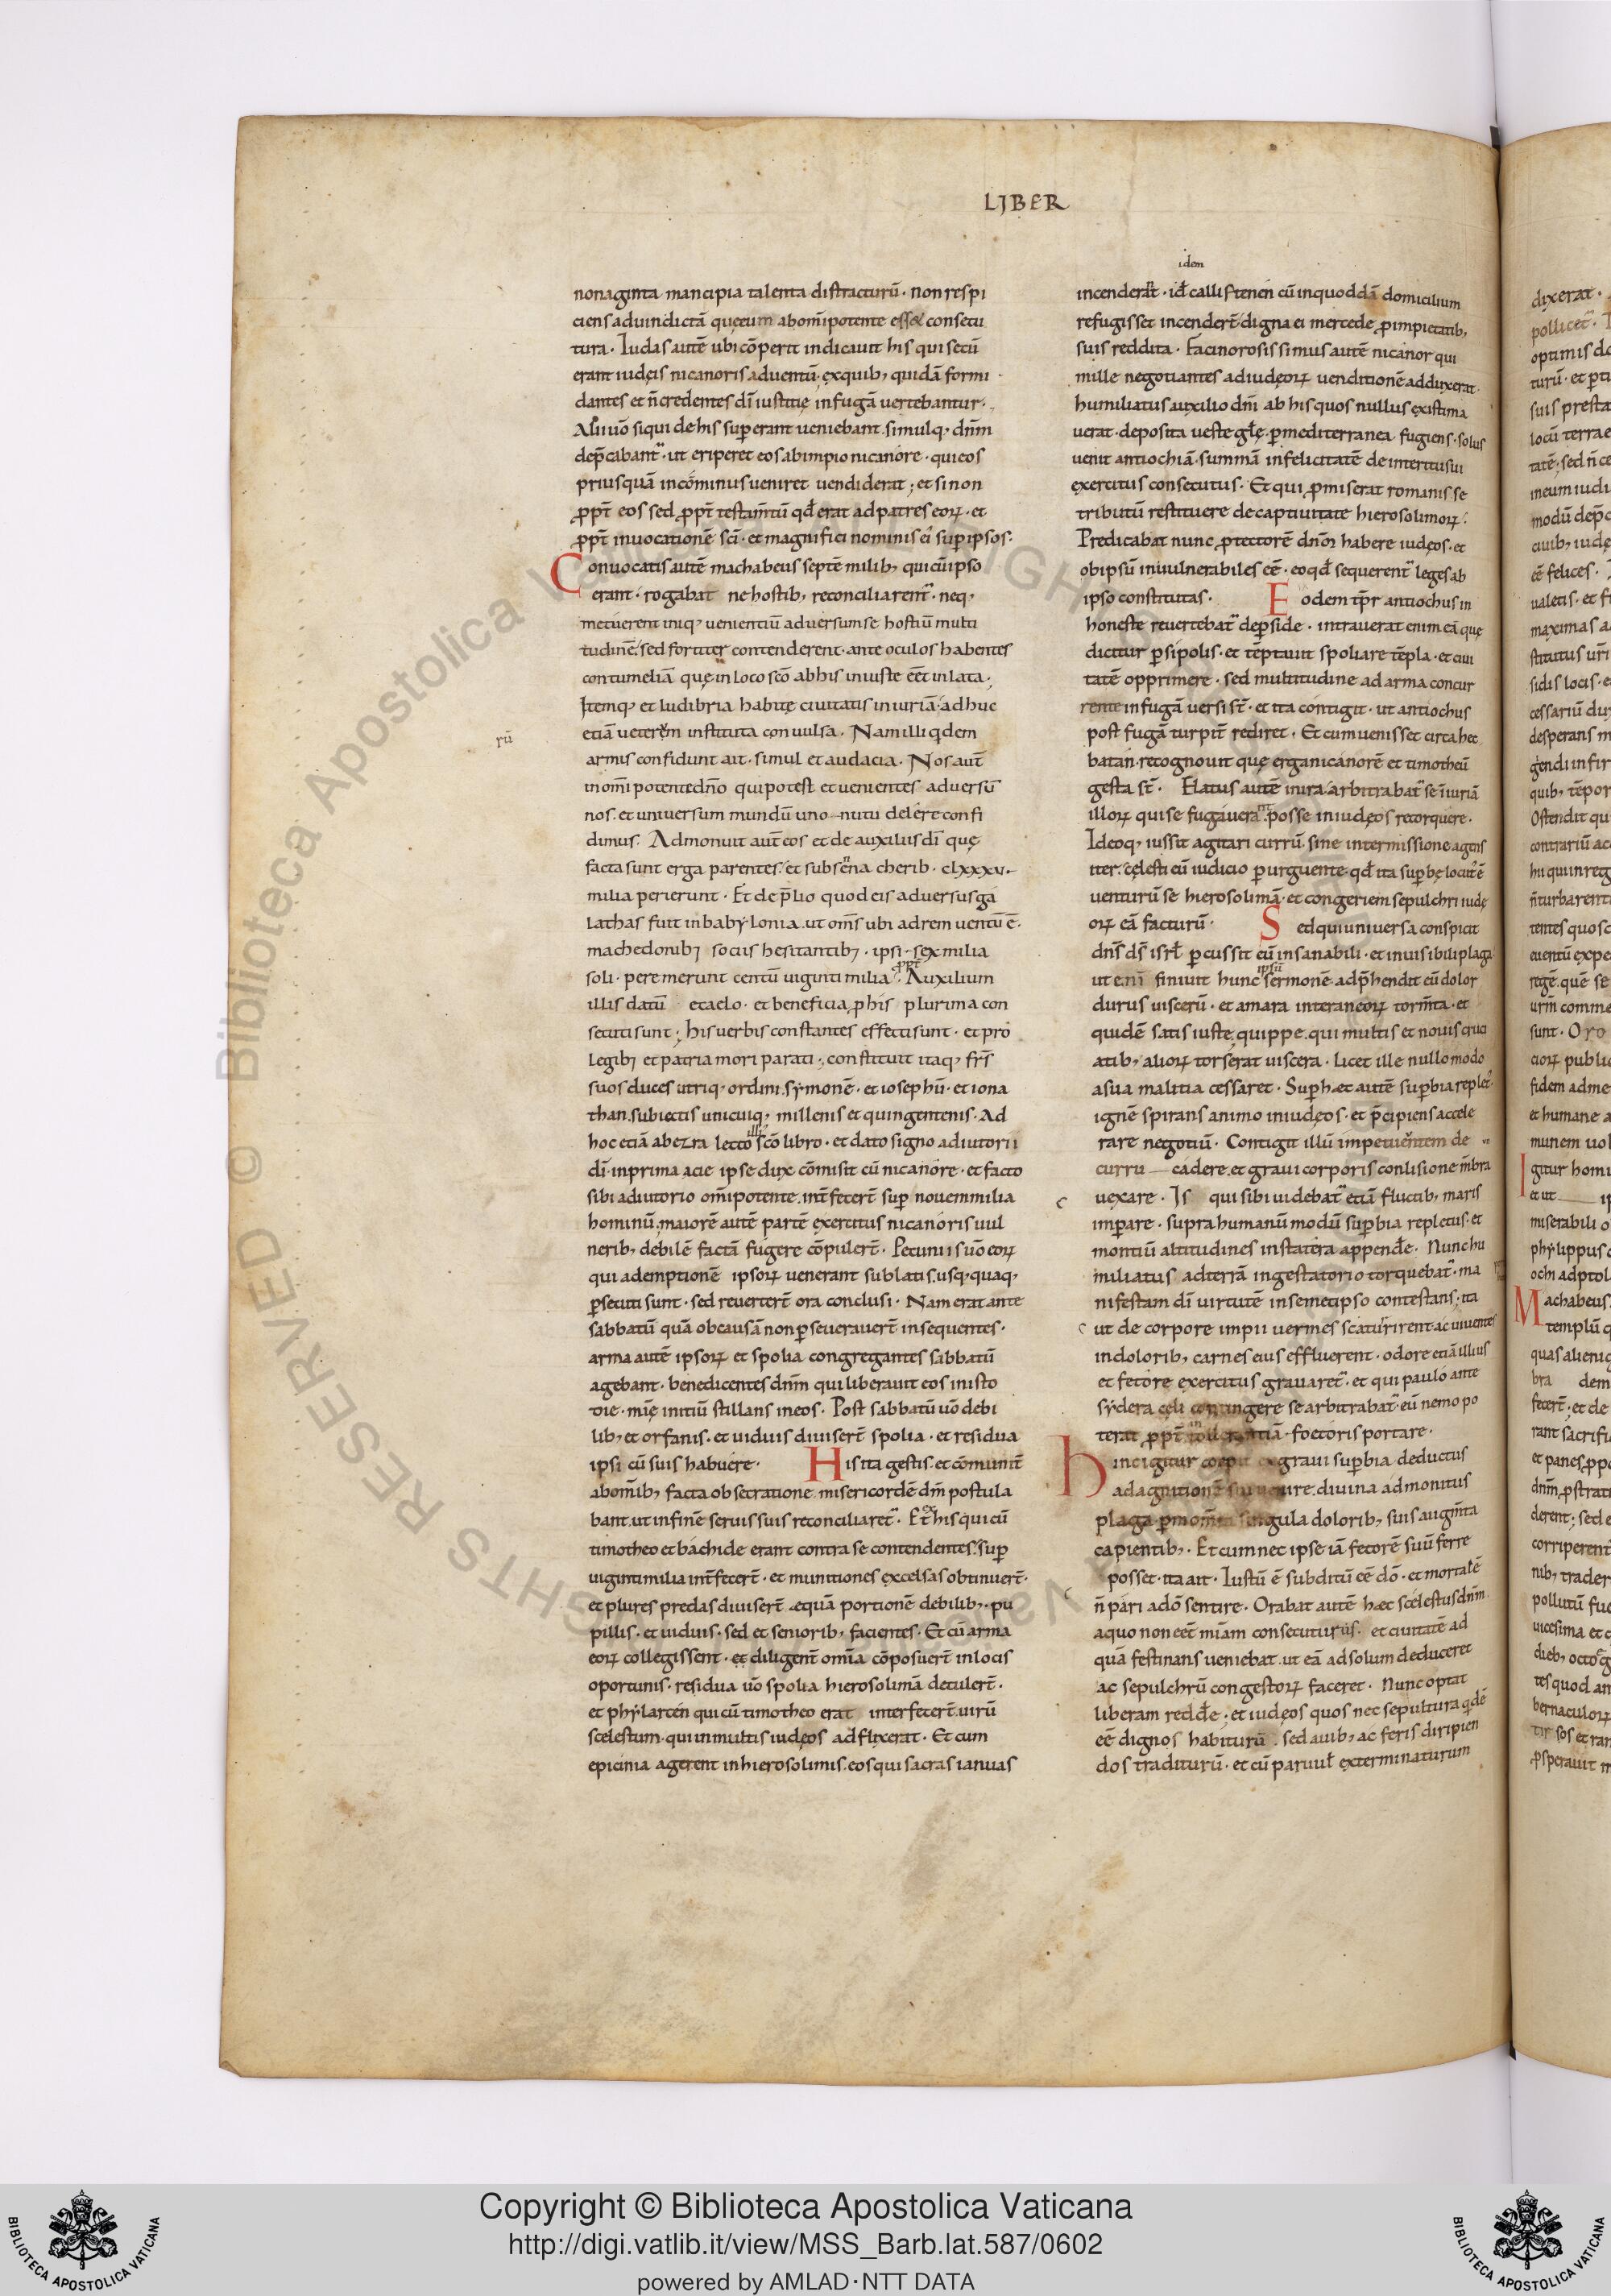 LIBER
nonaginta mancipia talenta distracturū · non respi
ciens ad uindictā quęeum abom̄ipotente esset consecu
tura · Iudas autē ubi cōperit indicauit his qui secū
erant iudęis nicanoris aduentū · ex quib; quidā formi
dantes et n̄ credentes dī iustitię in fugā uertebantur ·
Alii uō siqui de his superant ueniebant · simulq; dnm̄
dep̄cabant̄ · ut eriperet eos ab impio nicanore · qui eos
priusquā incōminus ueniret uendiderat ; et si non
ꝓpt̄ eos sed ꝓpt̄ testam̄tū qđ erat ad patres eoꝝ · et
ꝓpt̄ inuocationē sc̄i · et magnifici nominis ei' sup ipsos ·
Conuocatis autē machabeus septē milib; qui cū ipso
erant · rogabat ne hostib; reconciliarent̄ · neq;
metuerent iniq; uenientiū aduersum se hostiū multi
tudinē · sed fortiter contenderent · ante oculos habentes
contumeliā quę in loco sc̄o ab his iniuste eēt inlata ·
Itemq; et ludibria habitę ciuitatis iniuriā · adhuc
rū
etiāueterem instituta conuulsa · Nam illi qdem
armis confidunt ait · simul et audacia · Nos aut̄
in om̄ipotente dn̄o qui potest et uenientes aduersū
nos · et uniuersum mundū uno nutu delere confi
dimus · Admonuit aut eos et de auxiliis dī quę
facta sunt erga parentes · et sub sennacherib · clxxxv ·
milia perierunt · Et de p̄lio quod eis aduersus ga
lathas fuit in babylonia · ut om̄s ubi ad rem uentū ē ·
machedonib; sociis hesitantib; · ipsi · sex milia
soli · peremerunt centū uiginti milia ꝓpt̄ · Auxilium
illis datū e caelo · et beneficia ꝓ his plurima con
secuti sunt ; his uerbis constantes effecti sunt · et pro
legib; et patria mori parati · constituit itaq; frs̄
suos duces utriq; ordini · symonē · et iosephū · et iona
than · subiectis unicuiq; millenis et quingentenis · Ad
hoc etiā ab ezra lecto illis sc̄o libro · et dato signo adiutorii
dī · in prima acie ipse dux cōmisit cū nicanore · et facto
sibi adiutorio om̄ipotente · int̄fecer̄ sup nouem milia
hominū · maiorē autē partē exercitus nicanoris uul
nerib; debilē factā fugere cōpuler̄ · Pecuniis uō eoꝝ
qui ad emptionē ipsoꝝ uenerant sublatis · usq;quaq;
ꝑsecuti sunt · sed reuerter̄ ora conclusi · Nam erat ante
sabbatū quā ob causā non ꝑseuerauer̄ insequentes ·
arma autē ipsoꝝ et spolia congregantes sabbatū
agebant · benedicentes dnm̄ qui liberauit eos in isto
die · mię initiū stillans in eos · Post sabbatū uō debi
lib; et orfanis · et uiduis diuiser̄ spolia · et residua
ipsi cū suis habuere · His ita gestis · et cōmunit̄
ab om̄ib; facta obsecratione misericordē dm̄ postula
bant · ut in finē seruis suis reconciliaret̄ · Et ex his qui cū
timotheo et bachide erant contra se contendentes · sup
uiginti milia int̄fecer̄ · et munitiones excelsas obtinuer̄ ·
et plures predas diuiser̄ æquā portionē debilib; · pu
pillis · et uiduis · sed et seniorib; facientes · Et cū arma
eoꝝ collegissent · et diligent̄ omīa cōposuer̄ in locis
oportunis · residua uō spolia hierosolimā detuler̄ ·
et phylarcen qui cū timotheo erat interfecer̄ uirū
scelestum · qui in multis iudęos adflixerat · Et cum
epicinia agerent in hierosolimis · eos qui sacras ianuas
idem
incenderat · id ē callistenen cū in quoddā domicilium
refugisset incender̄ · digna ei mercede ꝓ impietatib;
suis reddita · Facinorosissimus autē nicanor qui
mille negotiantes ad iudęoꝝ uenditionē adduxerat ·
humiliatus auxilio dnī ab his quos nullus existima
uerat · deposita ueste glę · ꝑ mediterranea fugiens · solus
uenit antiochiā · summā infelicitatē de interitu sui
exercitus consecutus · Et qui ꝓmiserat romanis se
tributū restituere de captiuitate hierosolimoꝝ ·
Predicabat nunc ꝓtectorē dnm̄ habere iudęos · et
ob ipsū inuulnerabiles eē · eo qđ sequerent̄ leges ab
ipso constitutas · Eodem tp̄r antiochus in
honeste reuertebat̄ de ꝑside · intrauerat enim eā quę
dicitur ꝑsipolis · et tēptauit spoliare tēpla · et ciui
tatē opprimere · sed multitudine ad arma concur
rente in fugā uersi st̄ · et ita contigit · ut antiochus
post fugā turpit̄ rediret · Et cum uenisset circa hec
batan · recognouit quę erga nicanorē et timotheū
gesta st̄ · Elatus autē in ira · arbitrabat̄ se īiuriā
illoꝝ qui se fugauerant posse in iudęos retorquere ·
Ideoq; iussit agitari currū · sine intermissione agens
iter · cęlesti eū iudicio ꝑurguente · qđ ita supbe locut' ē
uenturū se hierosolimā · et congeriem sepulchri iudę
oꝝ eā facturū · Sed qui uniuersa conspicit
dns̄ ds̄ isrł percussit eū insanabili · et inuisibili plaga
ut enī finiuit hunc ipsū sermonē · adp̄hendit eū dolor
durus uiscerū · et amara internaneoꝝ torm̄ta · et
quidē satis iuste · quippe · qui multis et nouis cruci
atib; alioꝝ torserat uiscera · licet ille nullo modo
a sua malitia cessaret · Sup hæc autē supbia replet' ·
ignē spirans animo in iudęos · et p̄cipiens accele
rare negotiū · Contigit illū impetu euntem de
curru cadere · et graui corporis conlisione m̄bra
uexare · Is qui sibi uidebat̄ etiā fluctib; maris
imperare · supra humanū modū supbia repletus · et
montiū altitudines in statera appendē · Nunc hu
miliatus ad terrā in gestatorio torquebat̄ · ma
nifestam dī uirtutē in semetipso contestans ; ita
ut de corpore impii uermes scaturirent · ac uiuentes
in dolorib; carnes eius effluerent · odore etiā illius
et fetore exercitus grauaret̄ · et qui paulo ante
sydera cęli contingere se arbitrabat̄ · eū nemo po
terat ꝓpt̄ intollerantiā foetoris portare ·
Hinc igitur coepit ex graui supbia deductus
ad agnitionē sui uenire · diuina admonitus
plaga · ꝑ mom̄ta singula dolorib; suis augm̄ta
capientib; · Et cum nec ipse iā fetorē suū ferre
posset · ita ait · Iustū ē subditū eē dō · et mortalē
n̄ pari adō sentire · Orabat autē hæc scelestus dnm̄
a quo non eēt miām consecuturus · et ciuitatē ad
quā festinans ueniebat · ut eā ad solum deduceret
ac sepulchrū congestoꝝ faceret · Nunc optat
liberam reddē ; et iudęos quos nec sepultura qdē
eē dignos habiturū · sed auib; ac feris diripien
dos traditurū · et cū paruuł exterminaturum
Copyright © Biblioteca Apostolica Vaticana
http://digi.vatlib.it/view/MSS_Barb.lat.587/0602
powered by AMLAD·NTT DATA
BIBLIOTECA APOSTOLICA VATICANA
BIBLIOTECA APOSTOLICA VATICANA